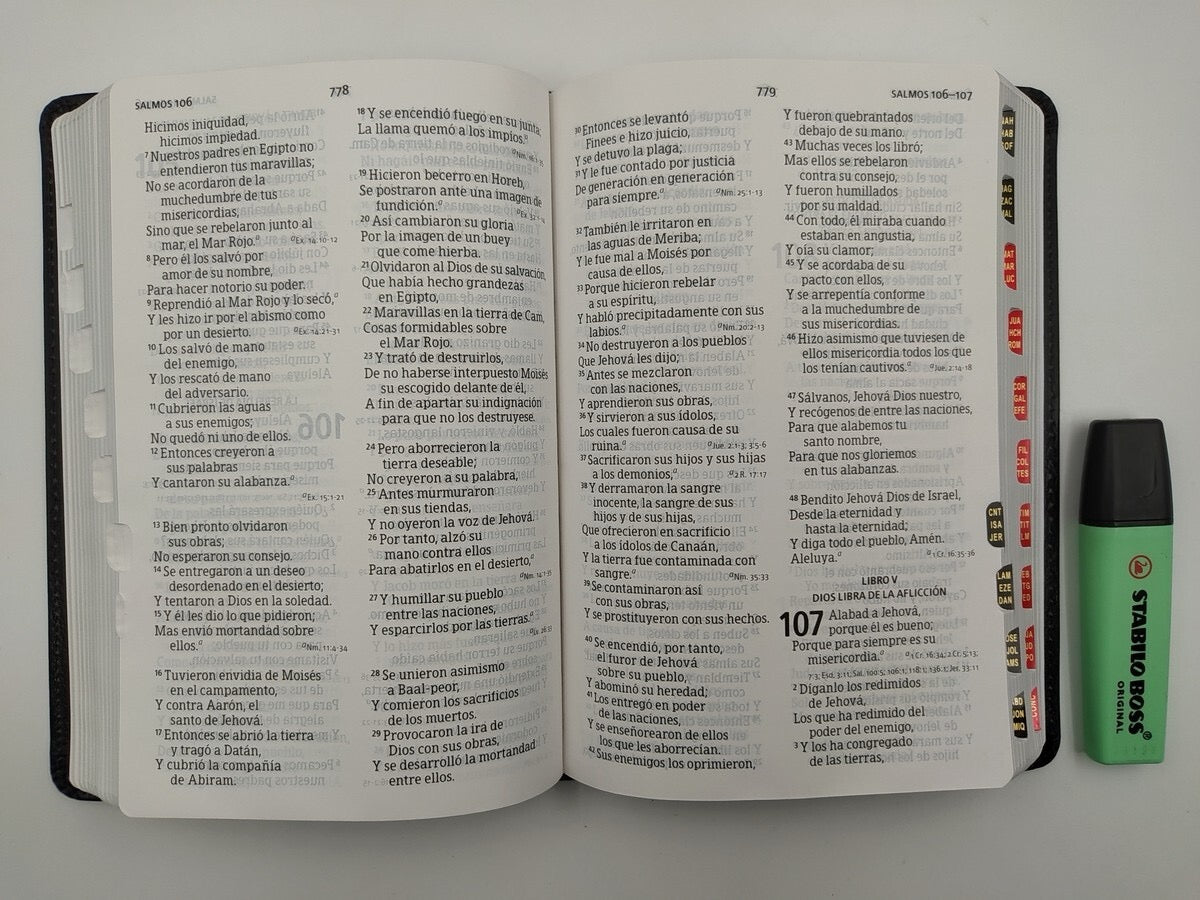 SALMOS 106
778
Hicimos iniquidad,
hicimos impiedad.
7 Nuestros padres en Egipto no
entendieron tus maravillas;
No se acordaron de la
muchedumbre de tus
misericordias;
Sino que se rebelaron junto al
mar, el Mar Rojo.a
a Ex. 14:10-12
8 Pero él los salvó por
amor de su nombre,
Para hacer notorio su poder.
9 Reprendió al Mar Rojo y lo secó,a
Y les hizo ir por el abismo como
por un desierto.
a Ex. 14:21-31
10 Los salvó de mano
del enemigo,
Y los rescató de mano
del adversario.
11 Cubrieron las aguas
a sus enemigos;
No quedó ni uno de ellos.
12 Entonces creyeron a
sus palabras
Y cantaron su alabanza.a
a Ex. 15:1-21
13 Bien pronto olvidaron
sus obras;
No esperaron su consejo.
14 Se entregaron a un deseo
desordenado en el desierto;
Y tentaron a Dios en la soledad.
15 Y él les dio lo que pidieron;
Mas envió mortandad sobre
ellos.a
a Nm. 11:4-34
16 Tuvieron envidia de Moisés
en el campamento,
Y contra Aarón, el
santo de Jehová.
17 Entonces se abrió la tierra
y tragó a Datán,
Y cubrió la compañía
de Abiram.
18 Y se encendió fuego en su junta;
La llama quemó a los impíos.a
a Nm. 16:1-35
19 Hicieron becerro en Horeb,
Se postraron ante una imagen de
fundición.a
a Ex. 32:1-14
20 Así cambiaron su gloria
Por la imagen de un buey
que come hierba.
21 Olvidaron al Dios de su salvación,
Que había hecho grandezas
en Egipto,
22 Maravillas en la tierra de Cam,
Cosas formidables sobre
el Mar Rojo.
23 Y trató de destruirlos,
De no haberse interpuesto Moisés
su escogido delante de él,
A fin de apartar su indignación
para que no los destruyese.
24 Pero aborrecieron la
tierra deseable;
No creyeron a su palabra,
25 Antes murmuraron
en sus tiendas,
Y no oyeron la voz de Jehová.
26 Por tanto, alzó su
mano contra ellos
Para abatirlos en el desierto,a
a Nm. 14:1-35
27 Y humillar su pueblo
entre las naciones,
Y esparcirlos por las tierras.a
a Lv. 26:33
28 Se unieron asimismo
a Baal-peor,
Y comieron los sacrificios
de los muertos.
29 Provocaron la ira de
Dios con sus obras,
Y se desarrolló la mortandad
entre ellos.
779
SALMOS 106—107
30 Entonces se levantó
Finees e hizo juicio,
Y se detuvo la plaga;
31 Y le fue contado por justicia
De generación en generación
para siempre.a
a Nm. 25:1-13
32 También le irritaron en
las aguas de Meriba;
Y le fue mal a Moisés por
causa de ellos,
33 Porque hicieron rebelar
a su espíritu,
Y habló precipitadamente con sus
labios.a
a Nm. 20:2-13
34 No destruyeron a los pueblos
Que Jehová les dijo;
35 Antes se mezclaron
con las naciones,
Y aprendieron sus obras,
36 Y sirvieron a sus ídolos,
Los cuales fueron causa de su
ruina.a
a Jue. 2:1-3; 3:5-6
37 Sacrificaron sus hijos y sus hijas
a los demonios,a
a 2 R. 17:17
38 Y derramaron la sangre
inocente, la sangre de sus
hijos y de sus hijas,
Que ofrecieron en sacrificio
a los ídolos de Canaán,
Y la tierra fue contaminada con
sangre.a
a Nm. 35:33
39 Se contaminaron así
con sus obras,
Y se prostituyeron con sus hechos.
40 Se encendió, por tanto,
el furor de Jehová
sobre su pueblo,
Y abominó su heredad;
41 Los entregó en poder
de las naciones,
Y se enseñorearon de ellos
los que les aborrecían.
42 Sus enemigos los oprimieron,
Y fueron quebrantados
debajo de su mano.
43 Muchas veces los libró;
Mas ellos se rebelaron
contra su consejo,
Y fueron humillados
por su maldad.
44 Con todo, él miraba cuando
estaban en angustia,
Y oía su clamor;
45 Y se acordaba de su
pacto con ellos,
Y se arrepentía conforme
a la muchedumbre de
sus misericordias.
46 Hizo asimismo que tuviesen de
ellos misericordia todos los que
los tenían cautivos.a
a Jue. 2:14-18
47 Sálvanos, Jehová Dios nuestro,
Y recógenos de entre las naciones,
Para que alabemos tu
santo nombre,
Para que nos gloriemos
en tus alabanzas.
48 Bendito Jehová Dios de Israel,
Desde la eternidad y
hasta la eternidad;
Y diga todo el pueblo, Amén.
Aleluya.a
a 1 Cr. 16:35-36
LIBRO V
DIOS LIBRA DE LA AFLICCIÓN
107 Alabad a Jehová,
porque él es bueno;
Porque para siempre es su
misericordia.a
a 1 Cr. 16:34; 2 Cr. 5:13;
7:3; Esd. 3:11; Sal. 100:5; 106:1; 118:1; 136:1; Jer. 33:11
2 Díganlo los redimidos
de Jehová,
Los que ha redimido del
poder del enemigo,
3 Y los ha congregado
de las tierras,
MAT
MAR
LUC
JUA
HCH
ROM
COR
GAL
EFE
FIL
COL
TES
CNT
ISA
JER
LAM
EZE
DAN
STABILO BOSS®
ORIGINAL